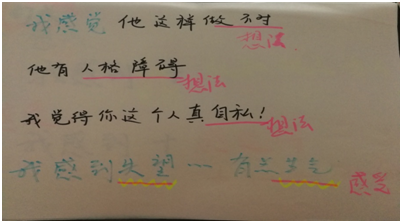 我感觉 他这样做不对
想法
他有人格障碍
想法
我觉得你这个人真自私!
想法
我感到失望…有点生气
感受